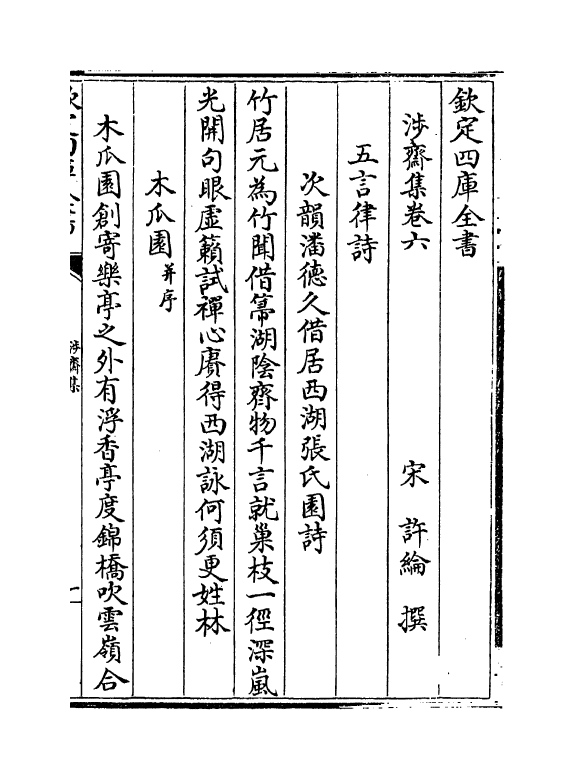 欽定四庫全書
涉齋集卷六　宋　許綸　撰
五言律詩
次韻潘德久借居西湖張氏園詩
竹居元為竹聞借箒湖陰齊物千言就巢枝一徑深嵐
光開句眼虛籟試禪心賡得西湖詠何須更姓林
木瓜園并序
木瓜園創寄樂亭之外有浮香亭度錦橋吹雲嶺合
涉齋集
一